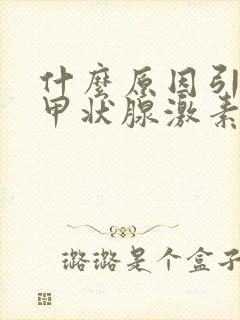 什麼原因引
甲状腺激素
璐璐是个盒子